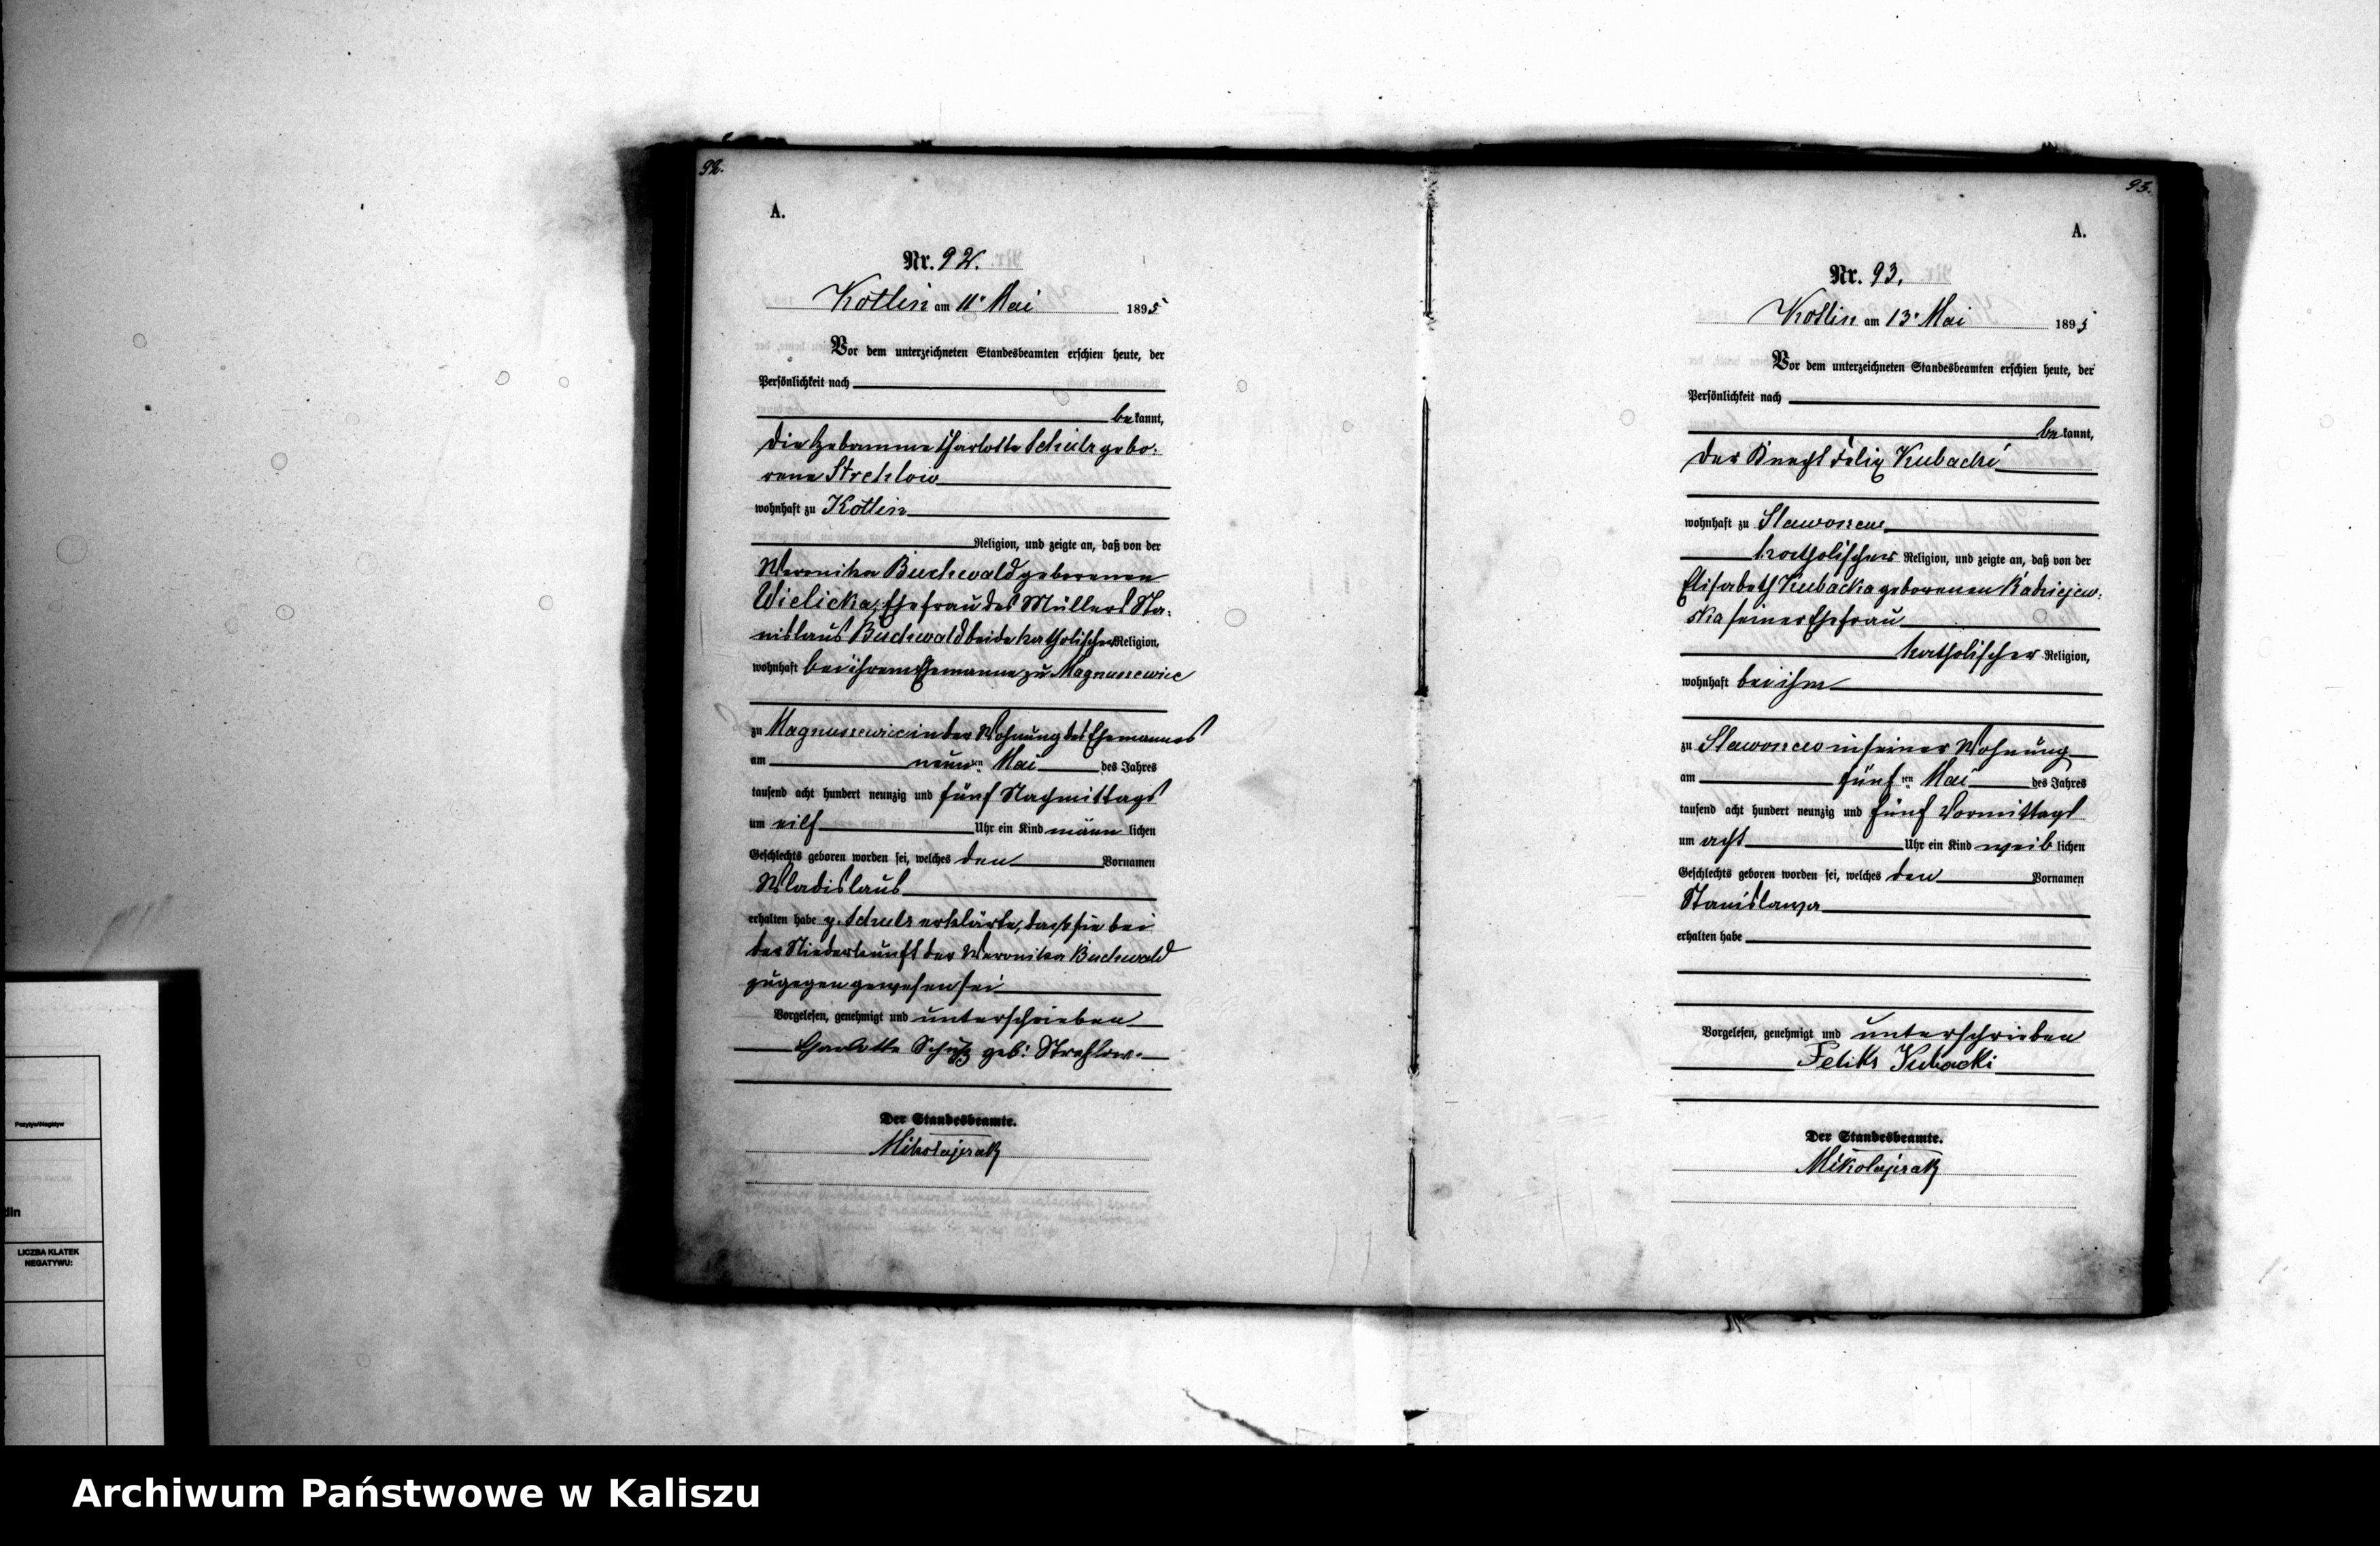 92.
A.
Nr. 92.
Kotlin am 11. Mai 1895
Vor dem unterzeichneten Standesbeamten erschien heute, der
Persönlichkeit nach
be kannt,
die Hebamme Charlotte Schulz gebo-
rene Strehlow
wohnhaft zu Kotlin
Religion, und zeigte an, daß von der
Weronika Buchwald geborenen
Wielicka, Ehefrau des Müllers Sta-
nislaus Buchwald beide katholischer Religion,
wohnhaft bei ihrem Ehemanne zu Magnuszewice
zu Magnuszewice in der Wohnung des Ehemannes
am neunten Mai des Jahres
tausend acht hundert neunzig und fünf Nachmittags
um eilf Uhr ein Kind männ lichen
Geschlechts geboren worden sei, welches den Vornamen
Wladislaus
erhalten habe p. Schulz erklärte, dass sie bei
der Niederkunft der Weronika Buchwald
zugegen gewesen sei
Vorgelesen, genehmigt und unterschrieben
Charlotte Schulz geb: Strehlow.
Der Standesbeamte.
Mikołajczak
93.
A.
Nr. 93.
Kotlin am 13. Mai 1895
Vor dem unterzeichneten Standesbeamten erschien heute, der
Persönlichkeit nach
be kannt,
der Knecht Felix Kubacki
wohnhaft zu Slawoszew
katholischer Religion, und zeigte an, daß von der
Elisabeth Kubacka geborenen Kadziejew-
ska seiner Ehefrau
katholischer Religion,
wohnhaft bei ihm
zu Slawoszew in seiner Wohnung
am fünften Mai des Jahres
tausend acht hundert neunzig und fünf Vormittags
um acht Uhr ein Kind weib lichen
Geschlechts geboren worden sei, welches den Vornamen
Stanislawa
erhalten habe
Vorgelesen, genehmigt und unterschrieben
Feliks Kubacki
Der Standesbeamte.
Mikołajczak
LICZBA KLATEK
NEGATYWU:
Archiwum Państwowe w Kaliszu